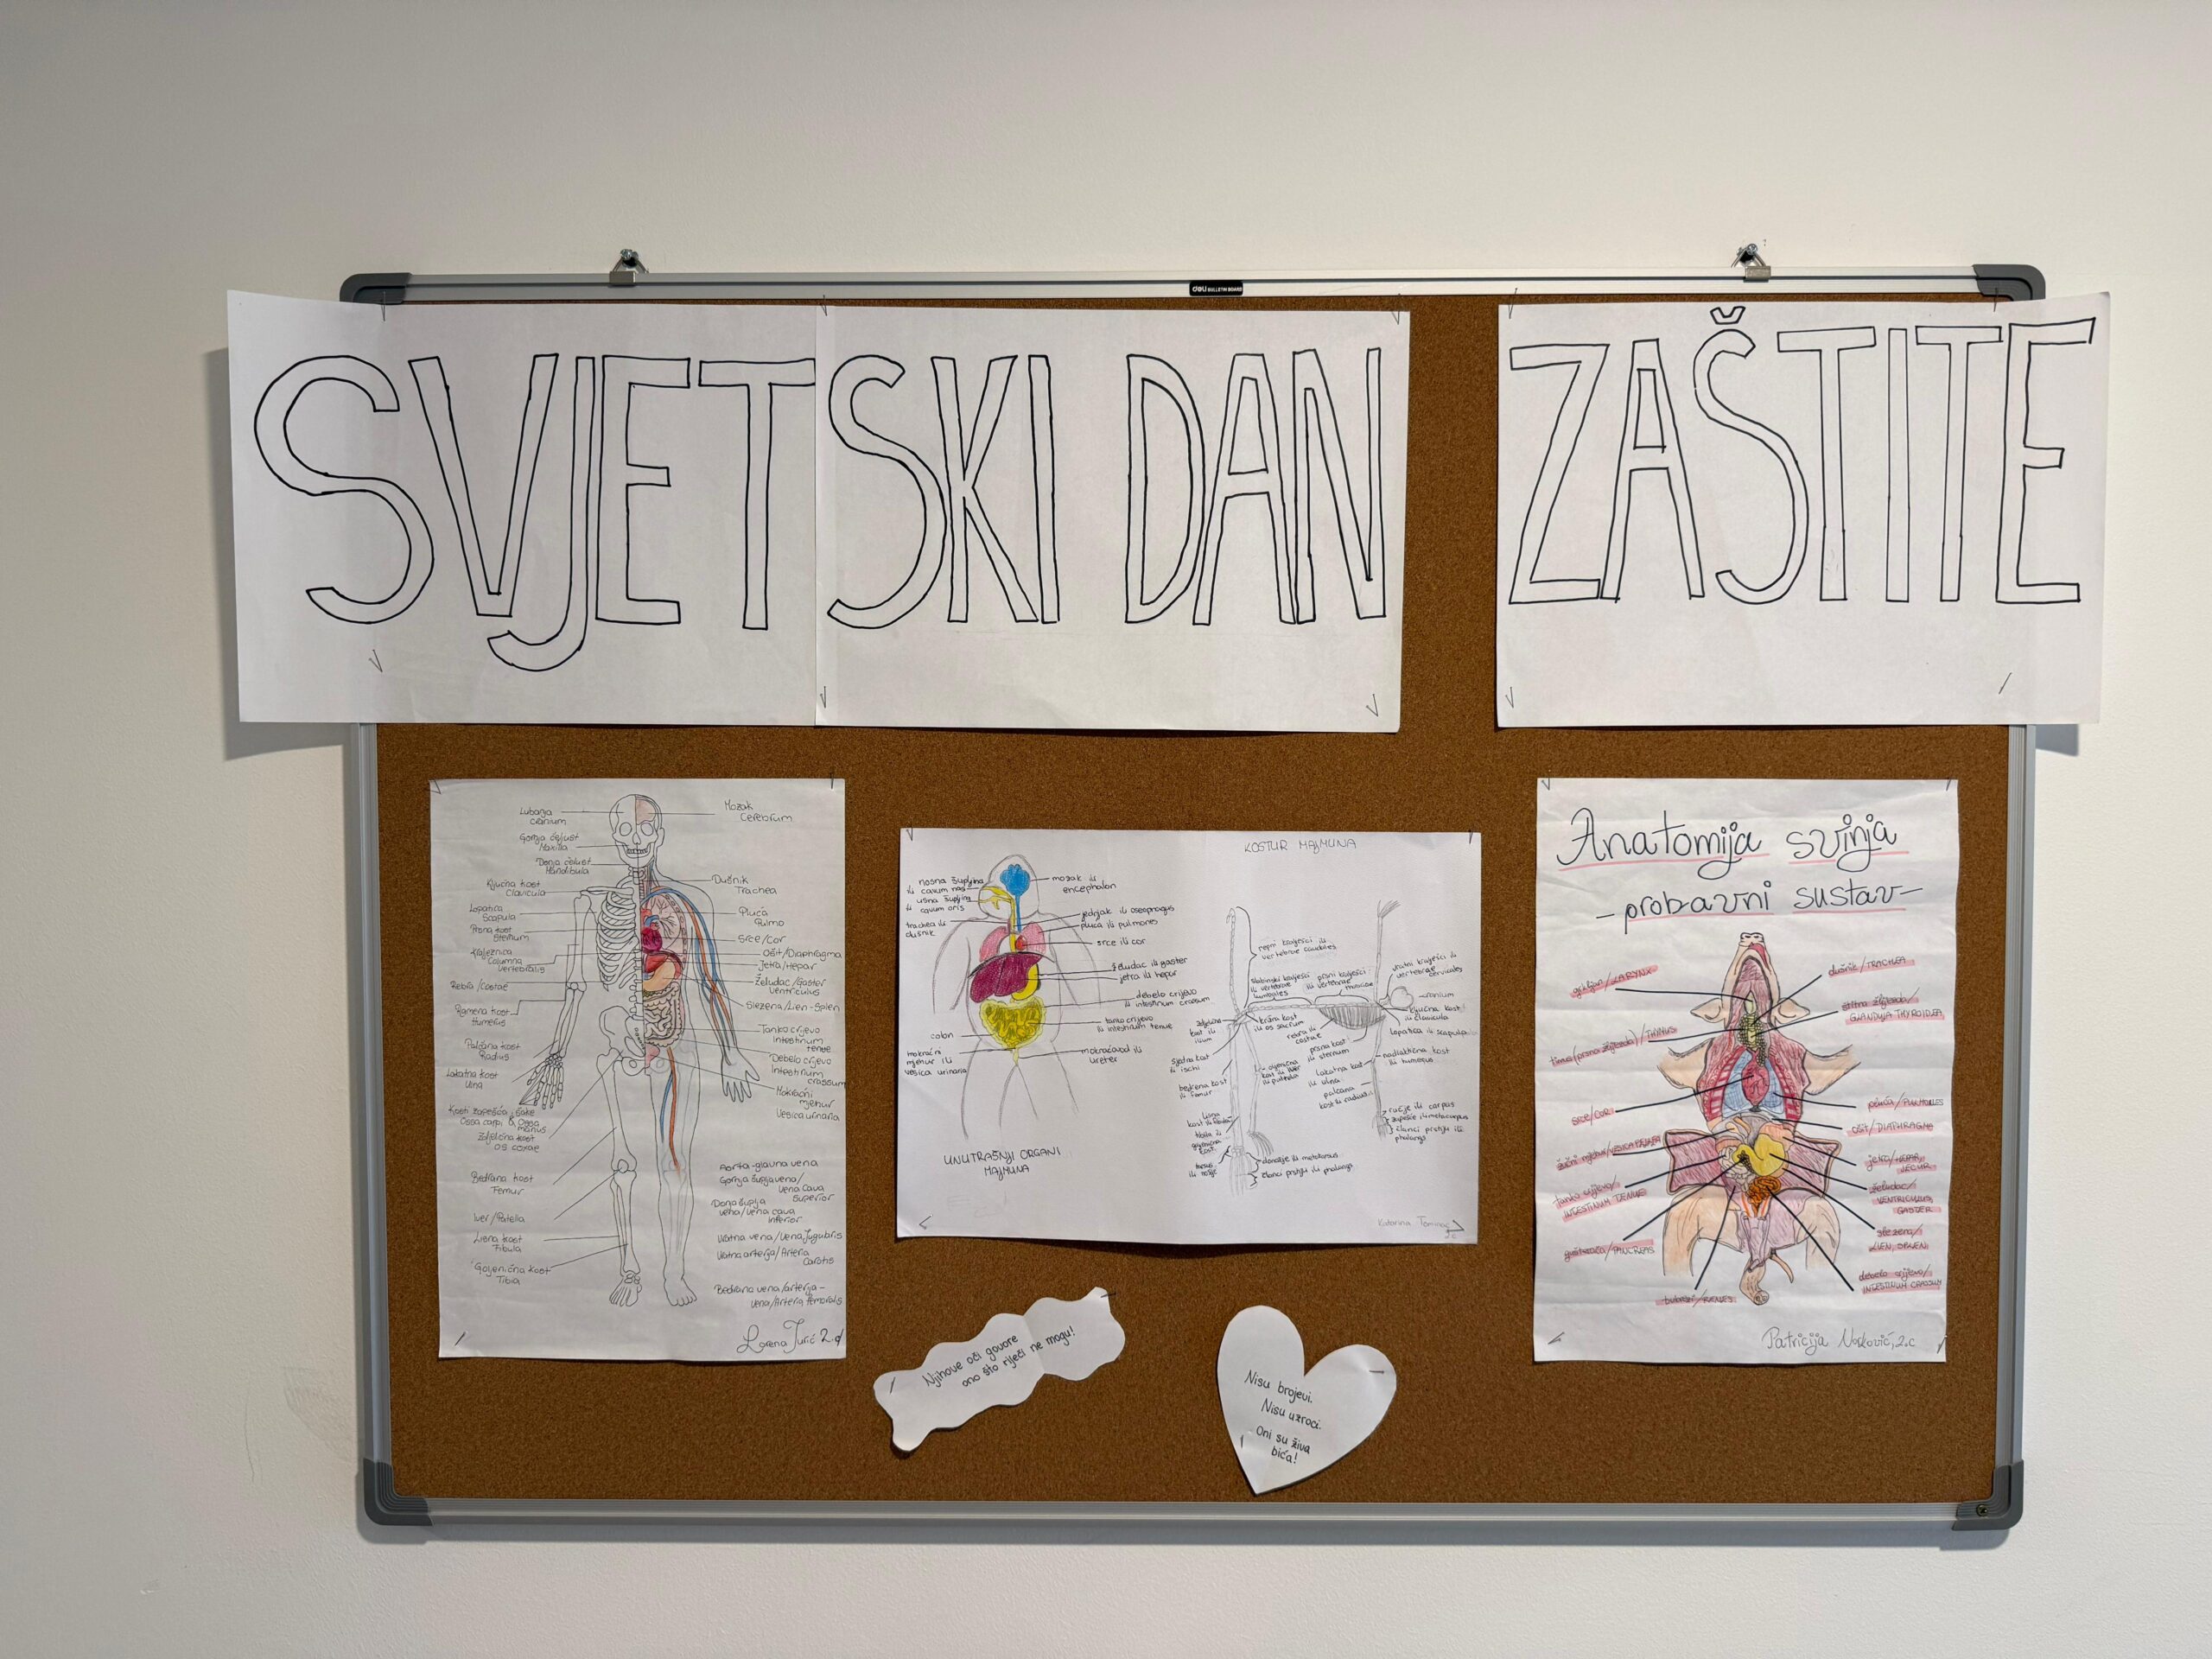 deli BULLETIN BOARD
SVJETSKI DAN ZAŠTITE
Lubanja
cranium
Gornja čeljust
Maxilla
Donja čeljust
Mandibula
Ključna kost
Clavicula
Lopatica
Scapula
Prsna kost
Sternum
Kralježnica
Columna
vertebralis
Rebra/Costae
Ramena kost
Humerus
Palčana kost
Radius
Lakatna kost
Ulna
Kosti zapešća i šake
Ossa carpi & Ossa
manus
Zdjelična kost
os coxae
Bedrena kost
Femur
Iver/Patella
Lisna kost
Fibula
Goljenična kost
Tibia
Mozak
Cerebrum
Dušnik
Trachea
Pluća
Pulmo
Srce/Cor
Ošit/Diaphragma
Jetra/Hepar
Želudac/Gaster
Ventriculus
Slezena/Lien-Splen
Tanko crijevo
Intestinum
tenue
Debelo crijevo
Intestinum
crassum
Mokraćni
mjehur
Vesica urinaria
Aorta-glavna vena
Gornja šuplja vena/
Vena cava
superior
Donja šuplja
vena/vena cava
inferior
Vratna vena/Vena Jugularis
Vratna arterija/Arteria
Carotis
Bedrena vena/arterija-
vena/Arteria femoralis
Lorena Jurić 2.d
nosna šupljina
ili cavum nasi
usna šupljina
ili cavum oris
trachea ili
dušnik
colon
mokraćni
mjehur ili
vesica urinaria
mozak ili
encephalon
jednjak ili oesophagus
pluća ili pulmones
srce ili cor
želudac ili gaster
jetra ili hepar
debelo crijevo
ili intestinum crassum
tanko crijevo
ili intestinum tenue
mokraćovod ili
ureter
UNUTRAŠNJI ORGANI
MAJMUNA
KOSTUR MAJMUNA
repni kralješci ili
vertebrae caudales
prsni kralješci
ili vertebrae
vratni kralješci ili
vertebrae
cervicales
cranium
ključna kost
ili clavicula
lopatica ili scapula
ili os sacrum
rebra ili
costae
prsna kost
ili sternum
nadlaktična kost
ili humerus
lakatna kost
ili ulna
palčana
kost ili radius
sjedna kost
ili ischi
bedrena kost
ili femur
ručje ili carpus
zapešće ili metacarpus
članci prstiju ili
phalange
donožje ili metatarsus
članci prstiju ili phalange
Katarina
Anatomija svinja
-probavni sustav-
grkljan/LARYNX
timus(prsna žlijezda)/THYMUS
SRCE/COR
žučni mjehur/VESICA FELLEA
tanko crijevo/
INTESTINUM TENUE
gušterača/PANCREAS
bubrezi/RENES
dušnik/TRACHEA
štitna žlijezda/
GLANDULA THYROIDEA
pluća/PULMONES
ošit/DIAPHRAGMA
jetra/HEPAR,
JECUR
želudac/
VENTRICULUS,
GASTER
slezena/
LIEN, SPLEN
debelo crijevo/
INTESTINUM CRASSUM
Patricija
2.c
Njihove oči govore
ono što riječi ne mogu!
Nisu brojevi.
Nisu uzroci.
Oni su živa
bića!